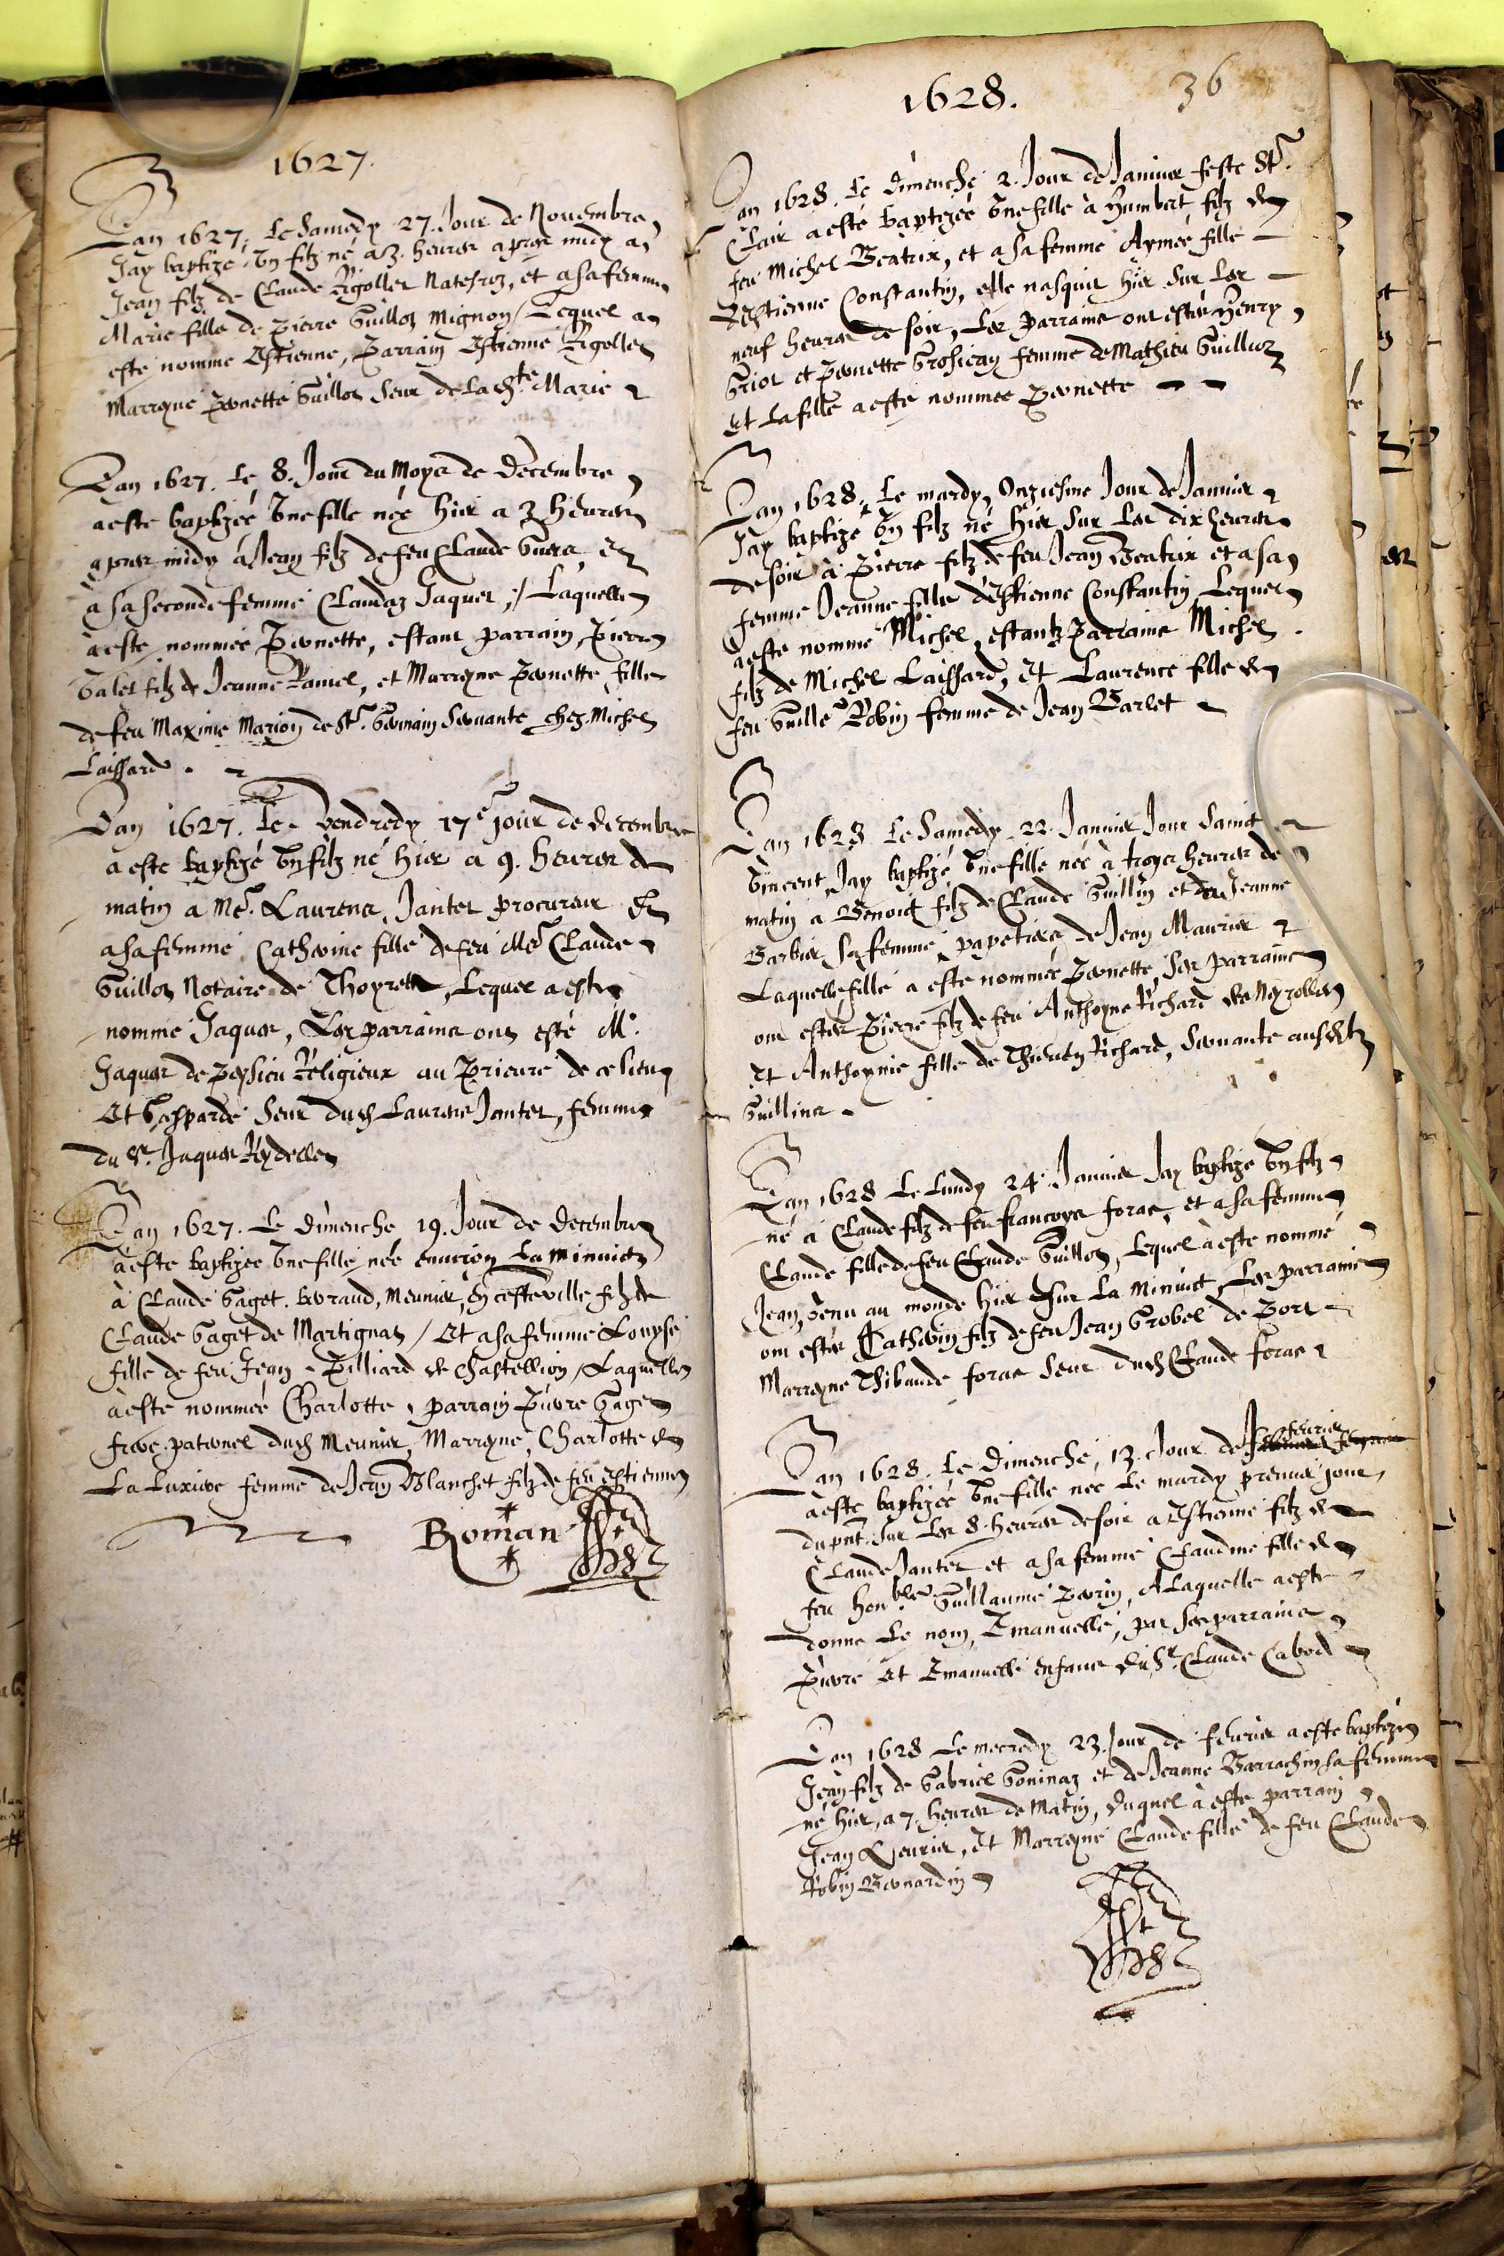 1627.
Lan 1627, Le Samedy .27. Jour de Nouembre
Jay baptizé Vn filz né a 3. heures apres midy a
Jean filz de Claude Rigollet et a sa femme
Marie fille de Pierre Guillot Mignon / Lequel a
este nomme Estienne, Parrain Estienne Rigollet
Marreyne Pernette Guillot Seur de La dte Marie
Lan 1627. Le 8. Jour du Moys de Decembre
a este baptizeé Vne fille née hier a 3 heures
apres midy à Jean filz de feu Claude et
à sa seconde femme Claudaz Jaquet, / Laquelle
à este nommée Pernette, estant parrain, Pierre
Galet filz de Jeanne Ramel, et Marreyne Pernette fille
de feu Maxime Marion de St. Germain Seruante chez Michel
Laissard.
Lan 1627. Le Vendredy 17e jour de decembre
a este baptizé Vn filz né hier a 9. heures de
matin a Me. Laurent Jantet procureur et
a sa femme Catherine fille de feu Me Claude
Guillot Notaire de Thoyrette, Lequel a este
nomme Jaques, Les parrains ont esté Mr.
Jaques de Peysieu Religieux au Prieuré de ce lieu
Et Gasparde Seur dud Laurens Jantet, femme
du Sr. Jaques Reydellet
Lan 1627. Le Dimenche 19. Jour de Decembre
à este baptizée Vne fille née enuiron La minuict
à Claude Gaget. Beraud, Meunier, en ceste ville filz de
Claude Gaget de Martignat / Et a sa femme Louyse
fille de feu Jean Pilliard de Chastellion / Laquelle
à este nommeé Charlotte, parrain Piere Gaget
frere paternel dud Meunier, Marreyne, Charlotte de
La Luxiere femme de Jean Blanchet filz de feu Estienne
Roman
1628.
36
Lan 1628. Le dimenche 2. Jour de Januier feste St.
Clair a esté baptizée Vne fille à Humbert filz de
feu Michel Beatrix, et a sa femme Aymeé fille
dEstienne Constantin, elle nasquit hier Sur Les
neuf heures de soir, Les Parrains ont estes Henry
Griot et Pernette Grosjean femme de Mathieu Guillioz
Et La fille a este nommee Pernette
Lan 1628. Le mardy, Onziesme Jour de Januier
Jay baptizé Vn filz né hier Sur Les dix heures
de soir à Pierre filz de feu Jean Beatrix et a sa
femme Jeanne fille dEstienne Constantin Lequel
a este nomme Michel, estantz Parrains Michel
filz de Michel Laissard, Et Laurence fille de
feu Guille Robin femme de Jean Barlet
Lan 1628 Le Samedy .22. Januier Jour Sainct
Vincent Jay baptizé Vne fille née à troys heures de
matin a Benoict filz de Claude Guillin et de Jeanne
Barbier Sa femme, papetiers de Jean Maurier
Laquelle fille a este nommée Pernette Ses parrains
ont estes Pierre filz de feu Anthoyne Richard de Neyrolles
Et Anthoynie fille de Richard, Seruante ausditz
Guillins.
Lan 1628 Le Lundy 24. Januier Jay baptizé Vn filz
né a Claude filz de feu francoys forat, et a sa femme
Claude fille de feu Claude Guillot, Lequel à este nommé
Jean, Venu au monde hier Sur La Minuict, Les parrains
ont estés Catherin filz de feu Jean Grobel de Port
Marreyne Thibaude forat Seur dud Claude forat
Lan 1628. Le Dimenche, 13. Jour de feurier
à este baptizée Vne fille nee Le mardy premier jour
du pnt. Sur Les 8. heures de soir a Estienne filz de
Claude Jantet et a sa femme Claudine fille de
feu honble Guillaume Perrin, A Laquelle a este
donne Le nom, Emanuelle, par Ses parrains
Pierre Et Emanuelle enfans du Sr. Claude Cabod
Lan 1628 Le mecredy 23. Jour de feurier a este baptizé
Jean filz de Gabriel Goninaz et de Jeanne Barrachin sa femme
né hier, a 7. heures de Matin, duquel à este parrain
Jean Leurier, Et Marreyne Claude fille de feu Claude
Robin Bernardin